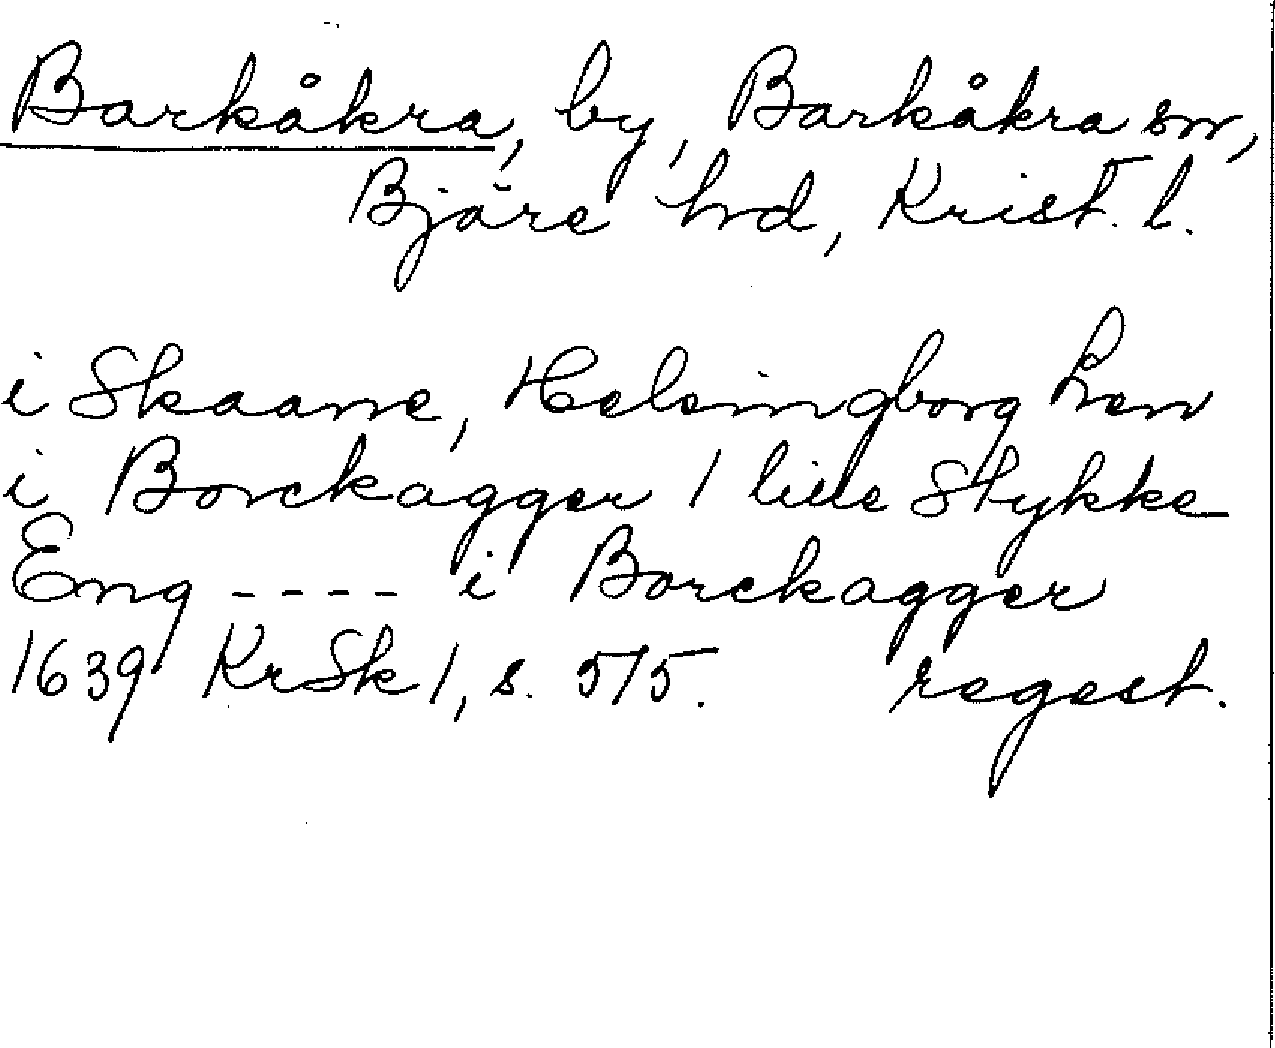 Barkåkra, by, Barkåkra sn,
Bjäre hd, Krist. l.
i Skaane, Helsingborg Len
i Borckagger 1 lille Stykke
Eng ---- i Borckagger
1639 KrSk 1, s. 575. regest.